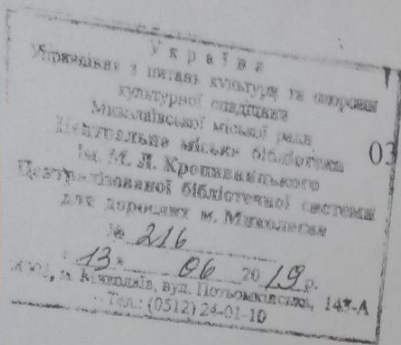 Україна
Управління з питань культури та охорони
культурної спадщини
Миколаївської міської ради
Центральна міська бібліотека
ім. М. Л. Кропивницького
Централізованої бібліотечної системи
для дорослих м. Миколаєва
№ 216
"13" 06 2019 р.
м. Миколаїв, вул. Потьомкінська, 143-А
Тел.: (0512) 24-01-10
03